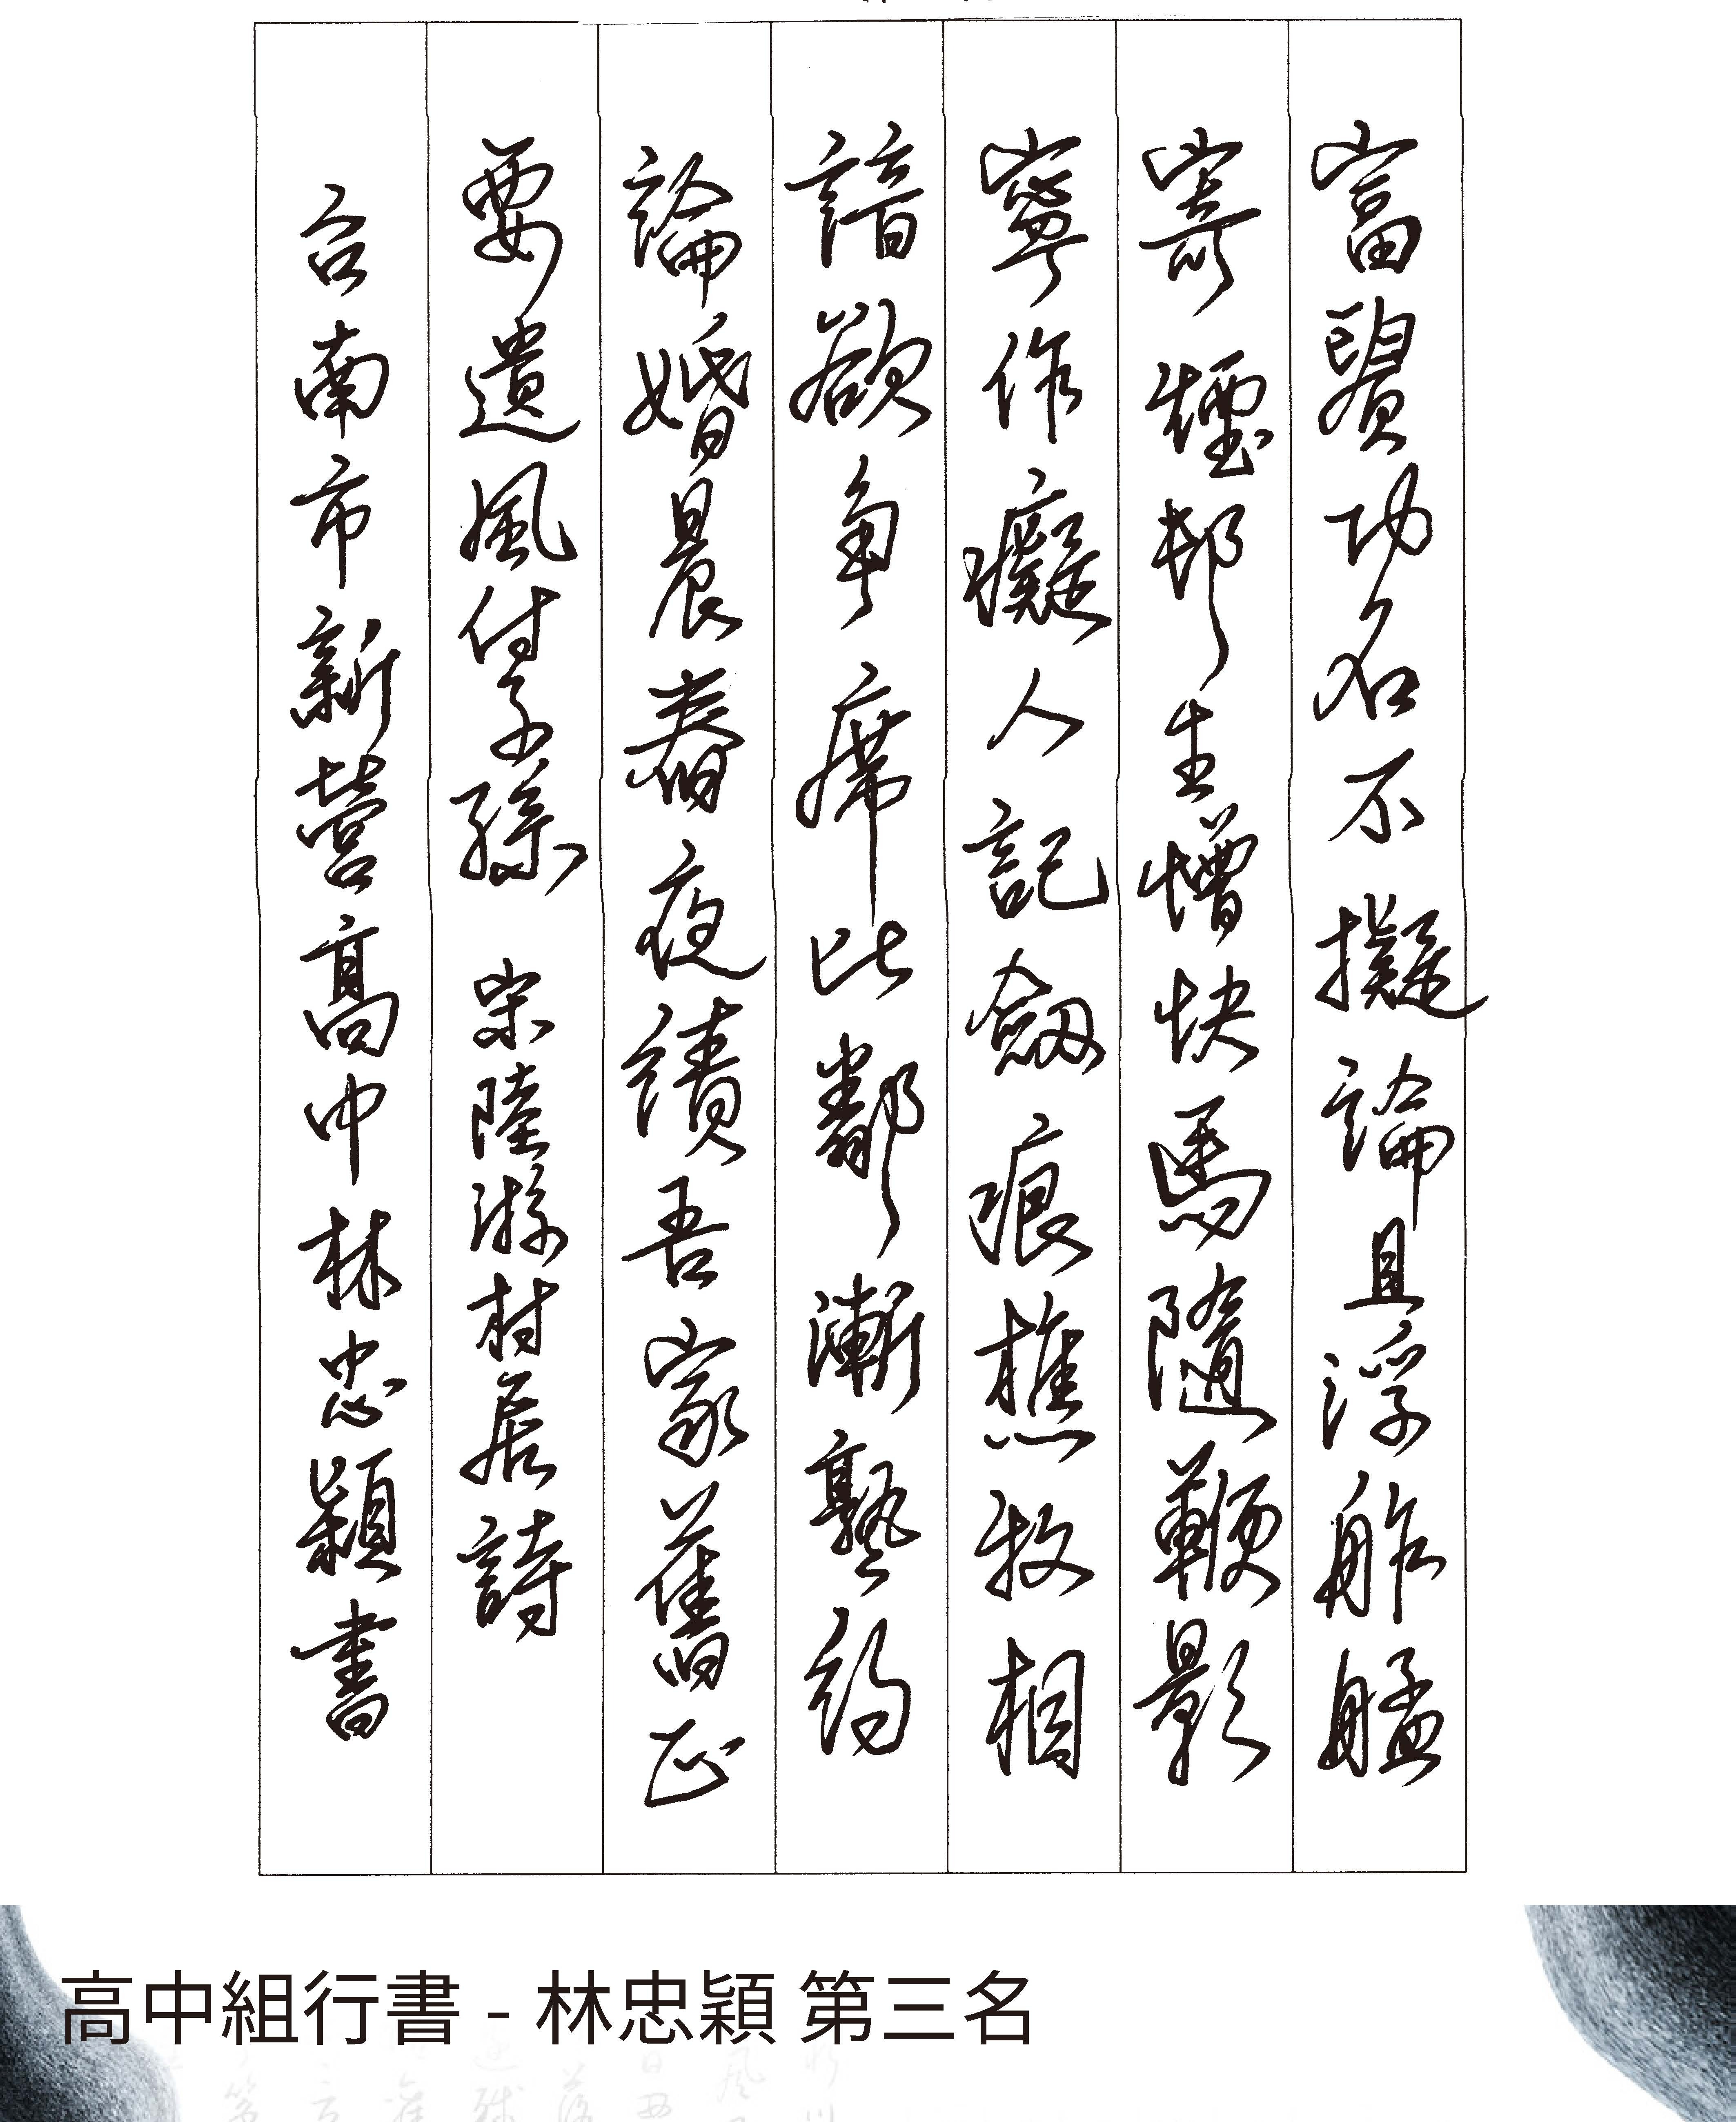 富貴功名不擬論且浮舴艋
寄煙邨生憎快馬隨鞭影
寧作癡人記劔痕樵牧相
諳欲爭席比鄰漸熟約
論婚晨舂夜績吾家舊正
要遺風付子孫 宋陸游村居詩
台南市新營高中林忠穎書
高中組行書 - 林忠穎 第三名